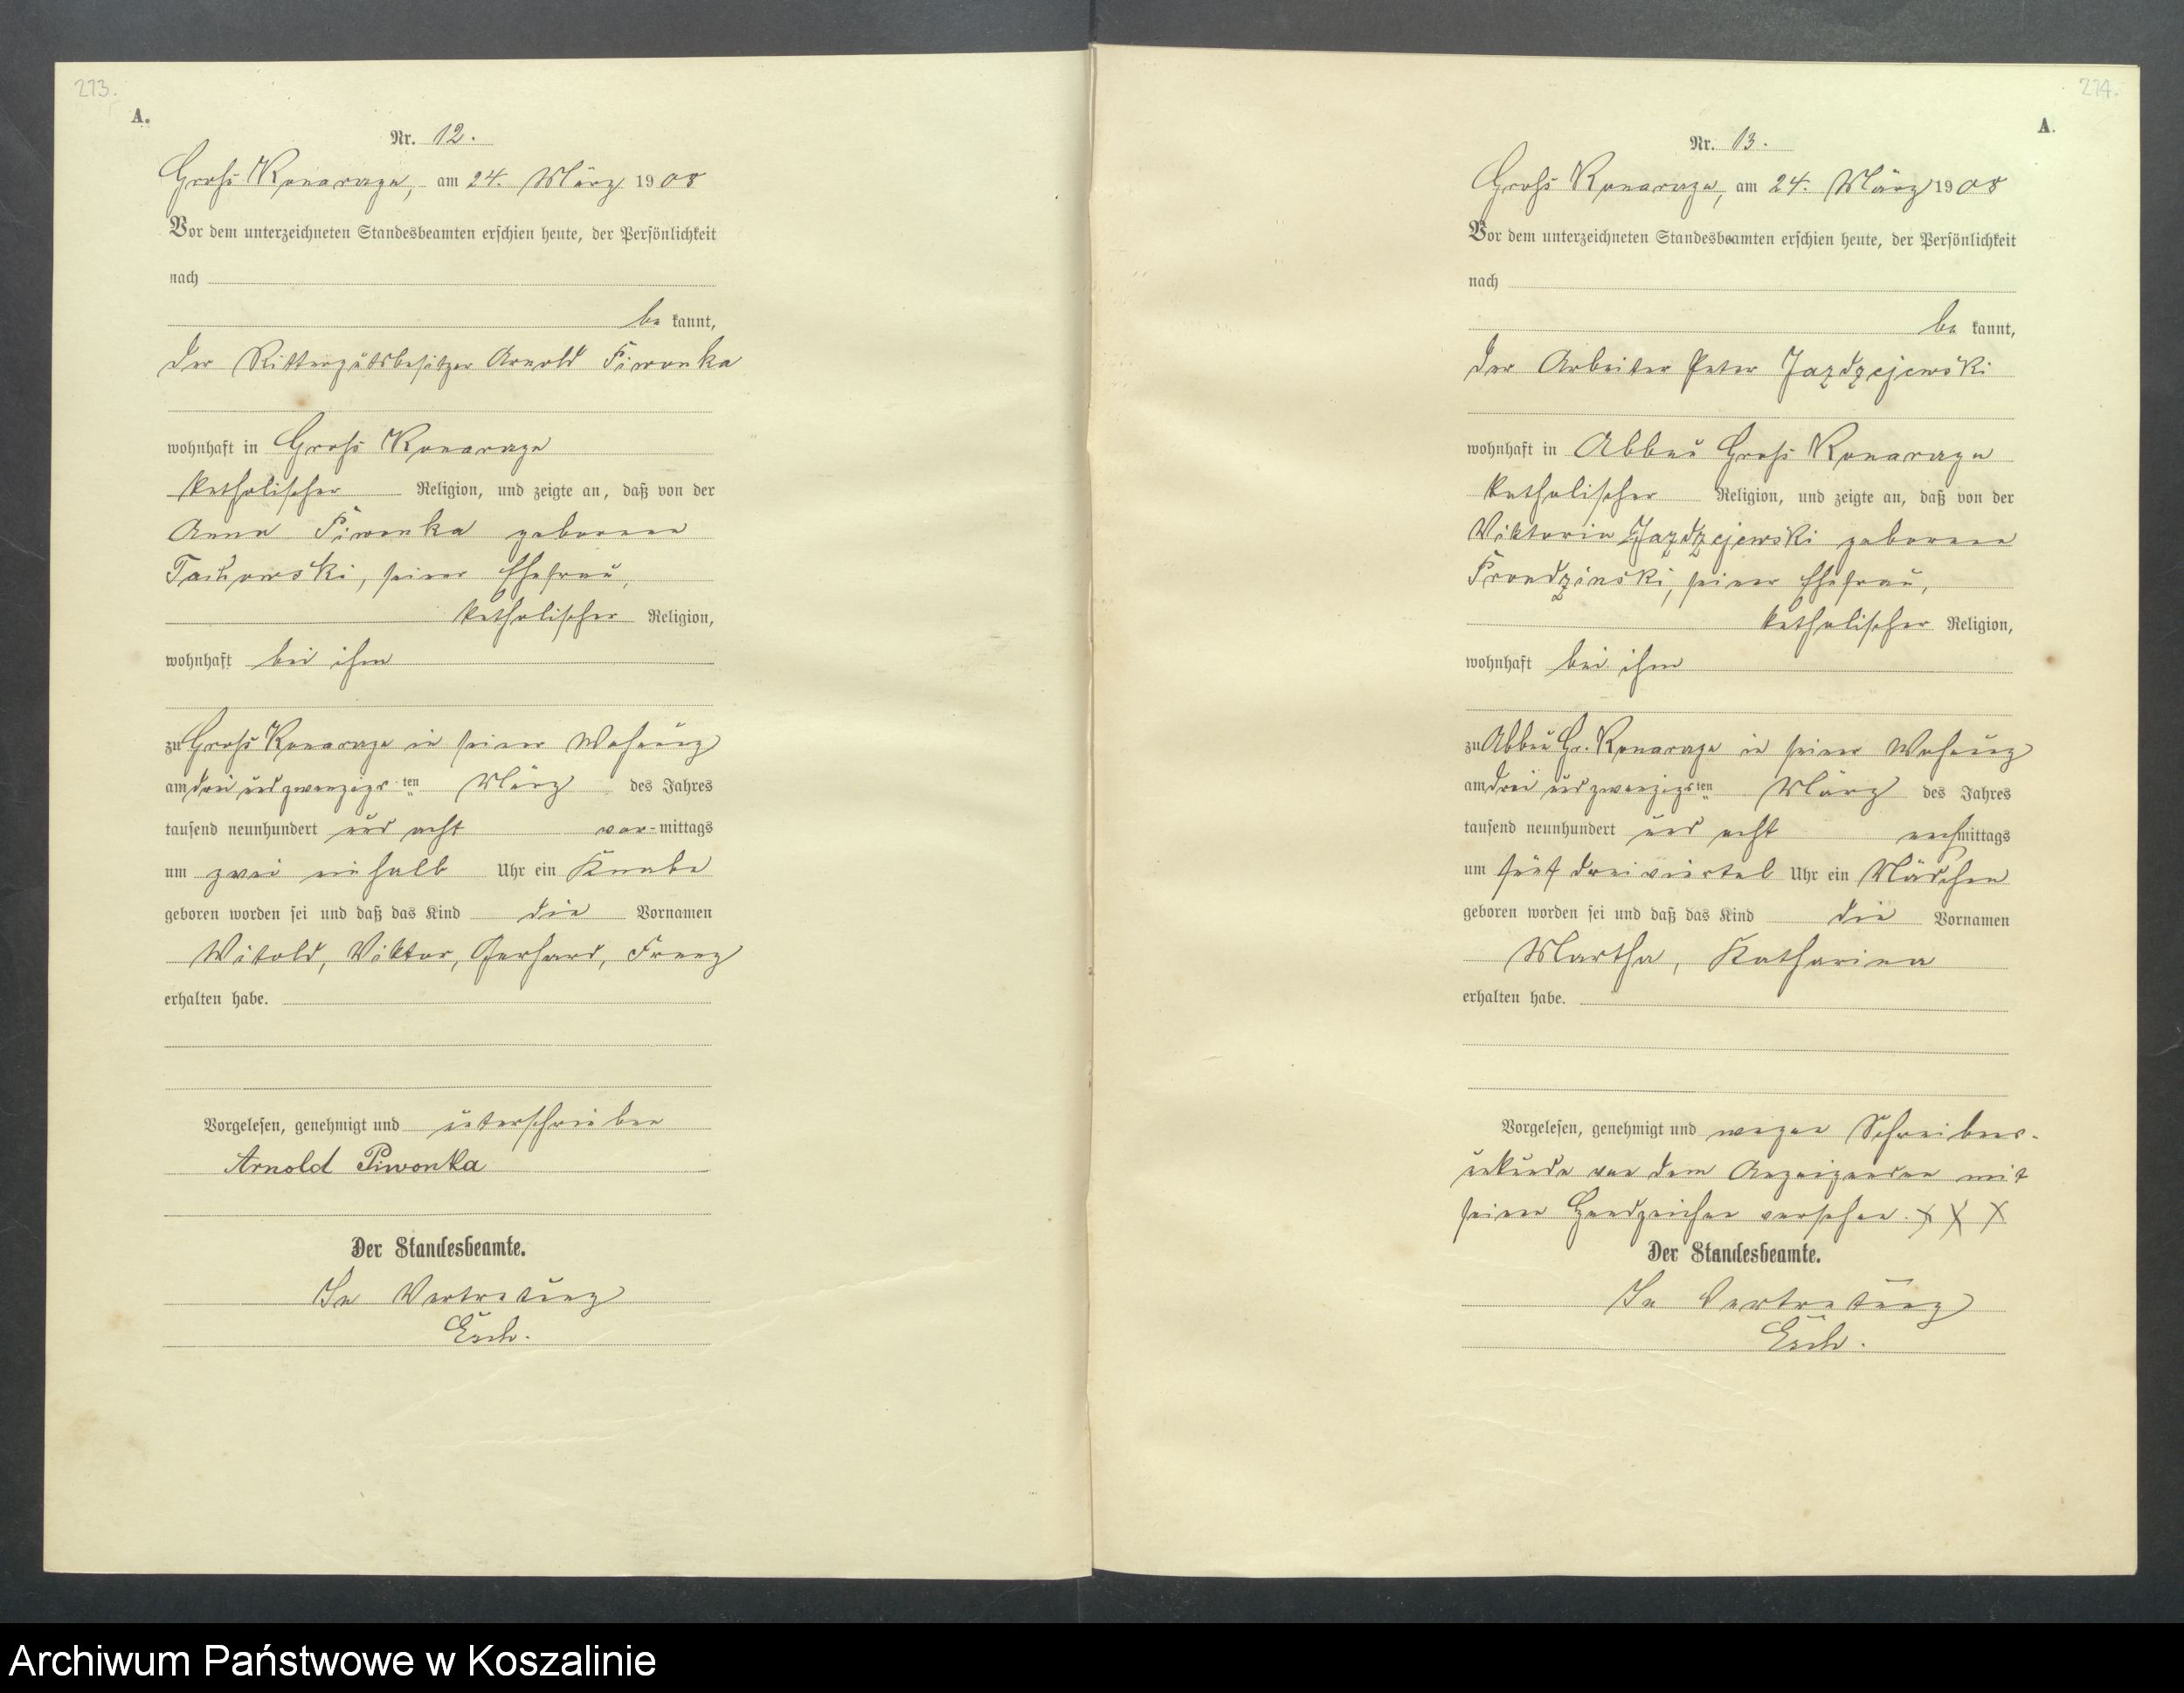 273.
A.
Nr. 12.
Groß Konarczyn, am 24. März 1908
Vor dem unterzeichneten Standesbeamten erschien heute, der Persönlichkeit
nach
be kannt,
der Rittergutsbesitzer Arnold Piwonka
wohnhaft in Groß Konarczyn
katholischer Religion, und zeigte an, daß von der
Anna Piwonka geborene
seiner Ehefrau,
katholischer Religion,
wohnhaft bei ihm
zu Groß Konarczyn in seiner Wohnung
am drei und zwanzigsten März des Jahres
tausend neunhundert und acht vor-mittags
um zwei ein halb Uhr ein Knabe
geboren worden sei und daß das Kind die Vornamen
Witold, Viktor, Gerhard, Franz
erhalten habe.
Vorgelesen, genehmigt und unterschrieben
Arnold Piwonka
Der Standesbeamte.
In Vertretung
274.
A.
Nr. 13.
Groß Konarczyn, am 24. März 1908
Vor dem unterzeichneten Standesbeamten erschien heute, der Persönlichkeit
nach
be kannt,
der Arbeiter Peter Jazdzejewski
wohnhaft in Abbau Groß Konarczyn
katholischer Religion, und zeigte an, daß von der
Viktoria Jazdzejewski geborene
seiner Ehefrau,
katholischer Religion,
wohnhaft bei ihm
zu Abbau Gr. Konarczyn in seiner Wohnung
am drei und zwanzigsten März des Jahres
tausend neunhundert und acht nachmittags
um fünf dreiviertel Uhr ein Mädchen
geboren worden sei und daß das Kind die Vornamen
Martha, Katharina
erhalten habe.
Vorgelesen, genehmigt und wegen Schreibens-
unkunde von dem Anzeigenden mit
seinem Handzeichen versehen. X X X
Der Standesbeamte.
In Vertretung
Archiwum Państwowe w Koszalinie